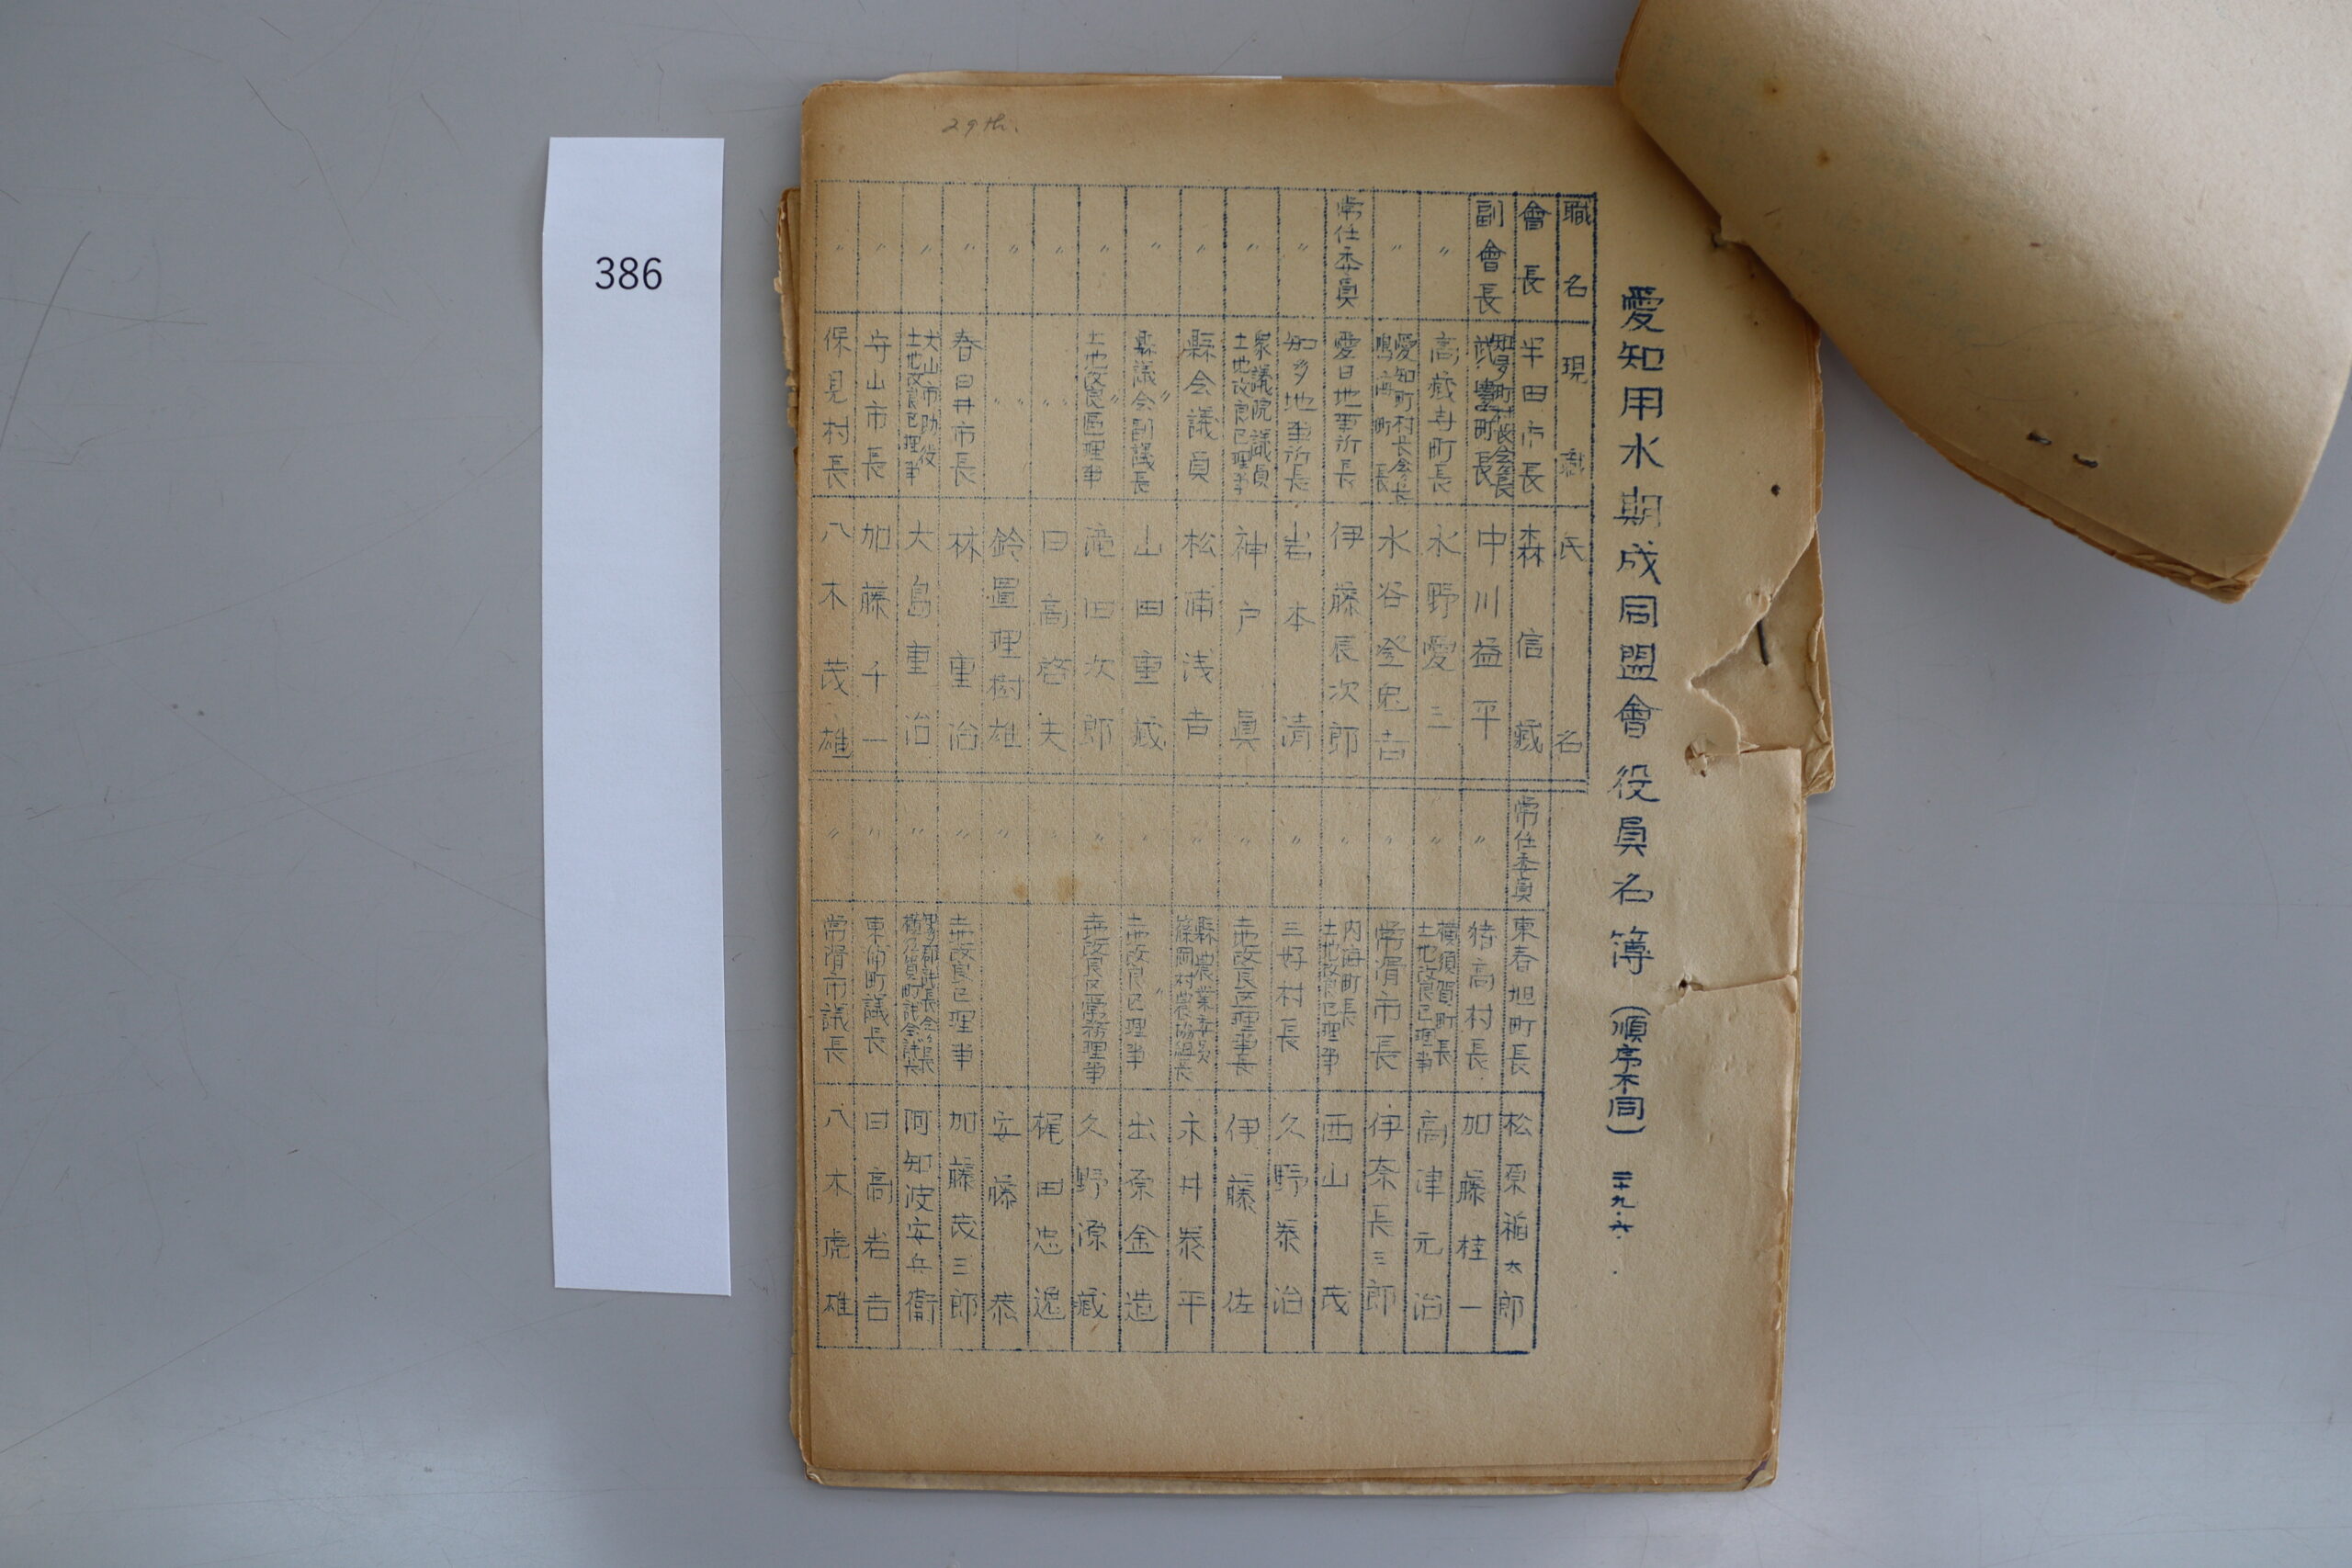 386
29th.
愛知用水期成同盟會役員名簿（順序不同）二十九・六・
職名 現職 氏名
會長 半田市長 森信藏
副會長 知多町村長会長 武豊町長 中川益平
〃 高藏寺町長 水野愛三
〃 愛知町村長会長 鳴海町長 水谷登鬼吉
常任委員 愛日地事所長 伊藤辰次郎
〃 知多地事所長 岩本清
〃 衆議院議員 土地改良区理事 神戸眞
〃 縣会議員 松浦浅吉
〃 縣議会副議長 山田重藏
〃 土地改良區理事 滝田次郎
〃 〃 日高啓夫
〃 〃 鈴置理樹雄
〃 春日井市長 林重治
〃 犬山市助役 土地改良区理事 大島重治
〃 守山市長 加藤千一
〃 保見村長 八木茂雄
常任委員 東春旭町長 松原福太郎
〃 猪高村長 加藤桂一
〃 横須賀町長 土地改良区理事 高津元治
〃 常滑市長 伊奈長三郎
〃 内海町長 土地改良区理事 西山茂
〃 三好村長 久野泰治
〃 土地改良区理事長 伊藤佐
〃 縣農業委員 篠岡村農協組長 永井泰平
〃 土地改良区理事 出原金造
〃 土地改良区常務理事 久野源藏
〃 梶田忠逸
〃 安藤恭
〃 土地改良区理事 加藤茂三郎
〃 阿知波安兵衞
〃 東浦町議長 日高岩吉
〃 常滑市議長 八木虎雄